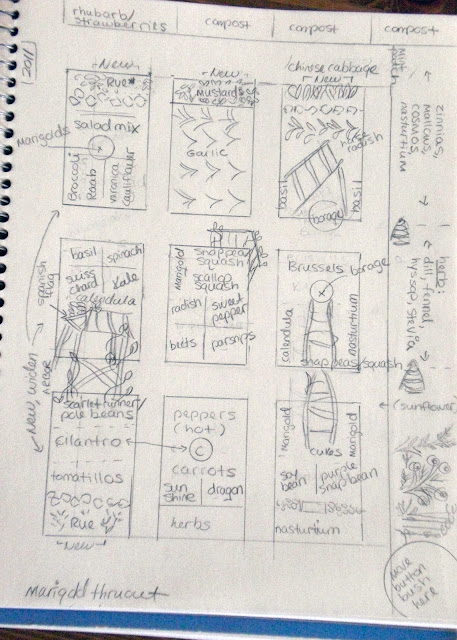 rhubarb/
strawberries
compost
compost
compost
2011
-New-
Rue*
Marigolds
salad mix
Broccoli
Raab
veronica
cauliflower
-New-
Mustard
Garlic
/chinese cabbage
-New-
radish
basil
basil
borage
mint
patch
zinnias,
mallows,
cosmos,
nasturtium
herb:
dill, fennel,
hyssop, stevia
(sunflower)
spanish
flag
basil
spinach
swiss
chard
kale
calendula
New, widen
ARBOR
scarlet runner/
pole beans
cilantro
tomatillos
Rue
-New-
Marigold
snap peas/
squash
scallop
squash
radish
sweet
pepper
beets
parsnips
peppers
(hot)
C
carrots
sun
shine
dragon
herbs
Brussels
borage
X
calendula
nasturtium
snap peas/squash
Marigold
Marigold
cukes
soy
bean
purple
snap bean
nasturtium
Move
button
bush
here
Marigold thruout